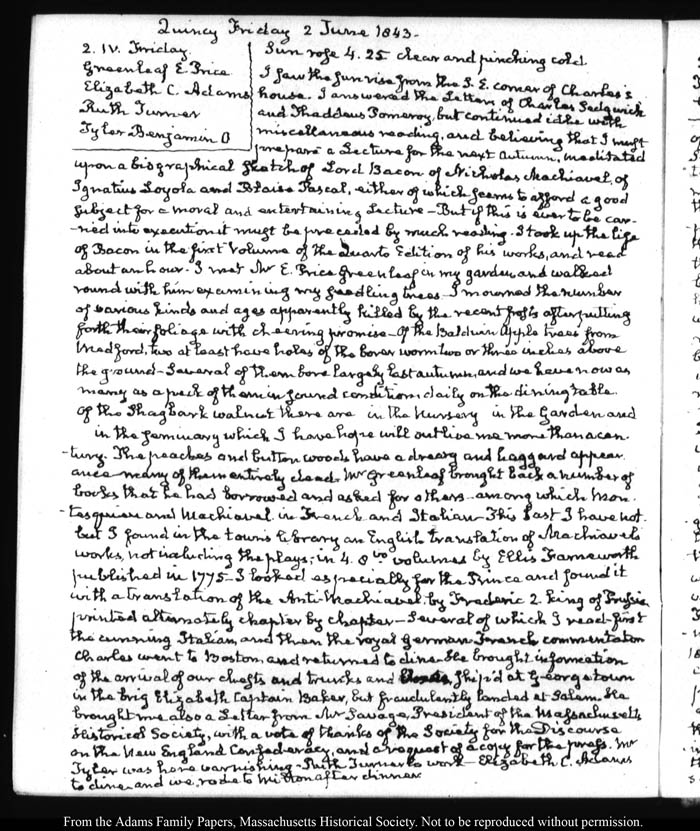 Quincy Friday 2 June 1843.
2. IV. Friday.
Greenleaf E. Price
Elizabeth C. Adams
Ruth Turner
Tyler Benjamin O
Sun rose 4. 25 clear and pinching cold.
I saw the sun rise from the S. E. corner of Charles's
house. I answered the Letters of Charles Sedgwick
and Thaddeus Pomeroy, but continued idle with
miscellaneous reading, and believing that I must
prepare a Lecture for the next autumn, meditated
upon a biographical sketch of Lord Bacon of Nicholas Machiavel, of
Ignatius Loyola and Blaise Pascal, either of which seems to afford a good
subject for a moral and entertaining Lecture – But if this is ever to be car-
-ried into execution it must be preceded by much reading. I took up the life
of Bacon in the first volume of the Quarto Edition of his works, and read
about an hour. I met Mr E. Price Greenleaf in my garden, and walked
round with him examining my seedling trees – I mourned the number
of various kinds and ages apparently killed by the recent frosts after putting
forth their foliage with cheering promise – Of the Baldwin Apple trees from
Medford, two at least have holes of the borer worm two or three inches above
the ground – Several of them bore largely last autumn, and we have now as
many as a peck of them in sound condition daily on the dining table.
Of the Shagbark walnut there are in the Nursery in the Garden and
in the seminary which I have hope will outlive me more than a cen-
-tury. The peaches and button woods have a dreary and haggard appear-
ance many of them entirely dead. Mr Greenleaf brought back a number of
books that he had borrowed and asked for others – among which Mon-
-tesquieu and Machiavel in French and Italian – This last I have not.
but I found in the town library an English translation of Machiavel's
works, not including the plays; in 4. 8vo volumes by Ellis Farneworth
published in 1775 – I looked especially for the Prince and found it
with a translation of the Anti Machiavel by Frederic 2. King of Prussia
printed alternately chapter by chapter – Several of which I read – first
the cunning Italian, and then the royal German French commentator
Charles went to Boston, and returned to dine. He brought information
of the arrival of our chests and trunks and ship'd at Georgetown
in the brig Elizabeth Captain Baker, but fraudulently landed at Salem. He
brought me also a Letter from Mr Savage, President of the Massachusetts
Historical Society, with a vote of thanks of the Society for the Discourse
on the New England Confederacy, and a request of a copy for the press. Mr
Tyler was here varnishing – Ruth Turner to work – Elizabeth C. Adams
to dine and we rode to Milton after dinner
From the Adams Family Papers, Massachusetts Historical Society. Not to be reproduced without permission.